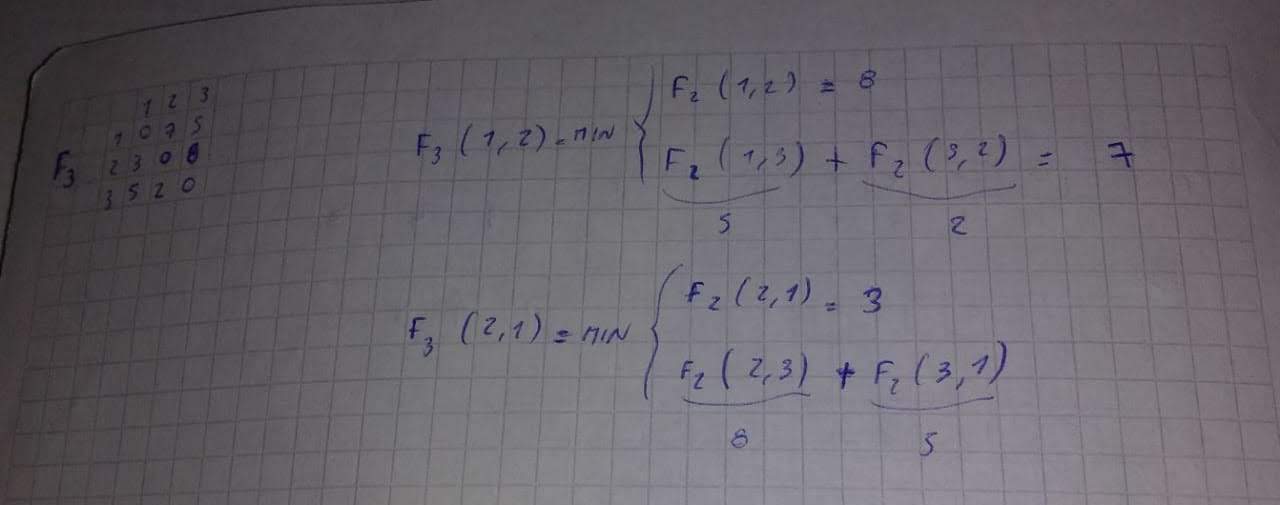 1 2 3
1 0 7 5
F₃ 2 3 0 8
3 5 2 0
F₃ (1,2) = MIN { F₂ (1,2) = 8
F₂ (1,3) + F₂ (3,2) = 7
5 2
F₃ (2,1) = MIN { F₂ (2,1) = 3
F₂ (2,3) + F₂ (3,1)
8 5